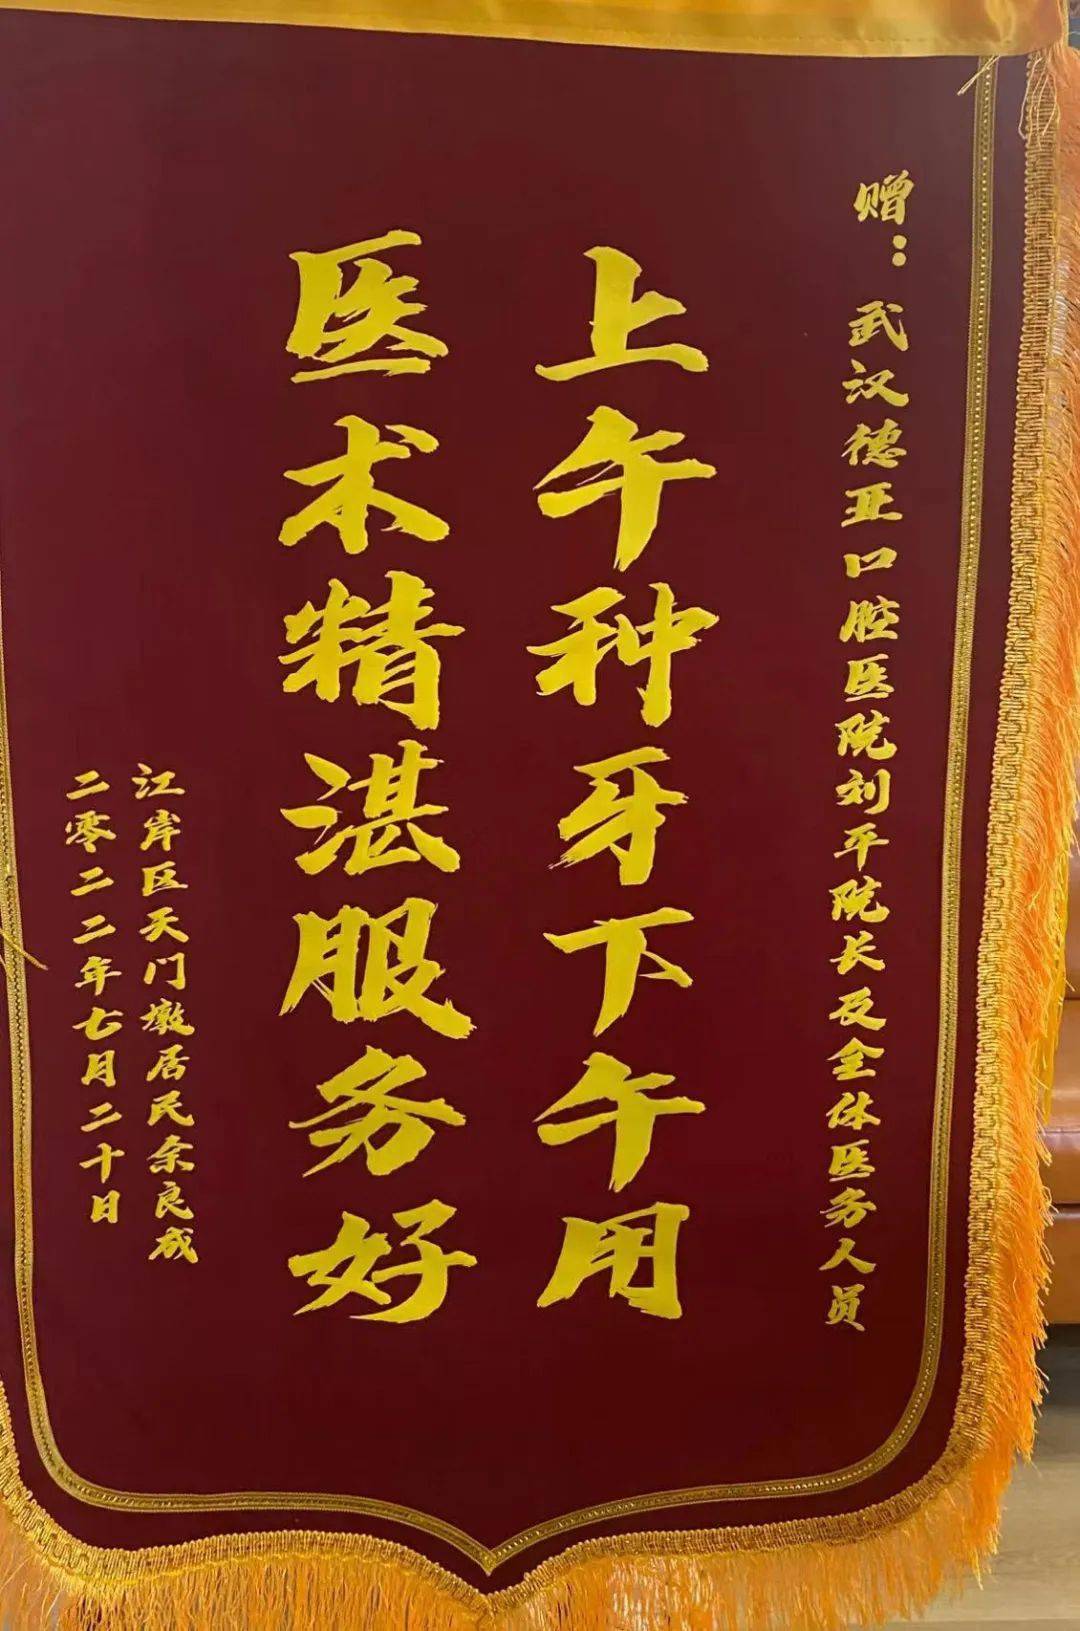 赠：武汉德亚口腔医院刘平院长及全体医务人员
上午种牙下午用
医术精湛服务好
江岸区天门墩居民余良成
二零二二年七月二十日